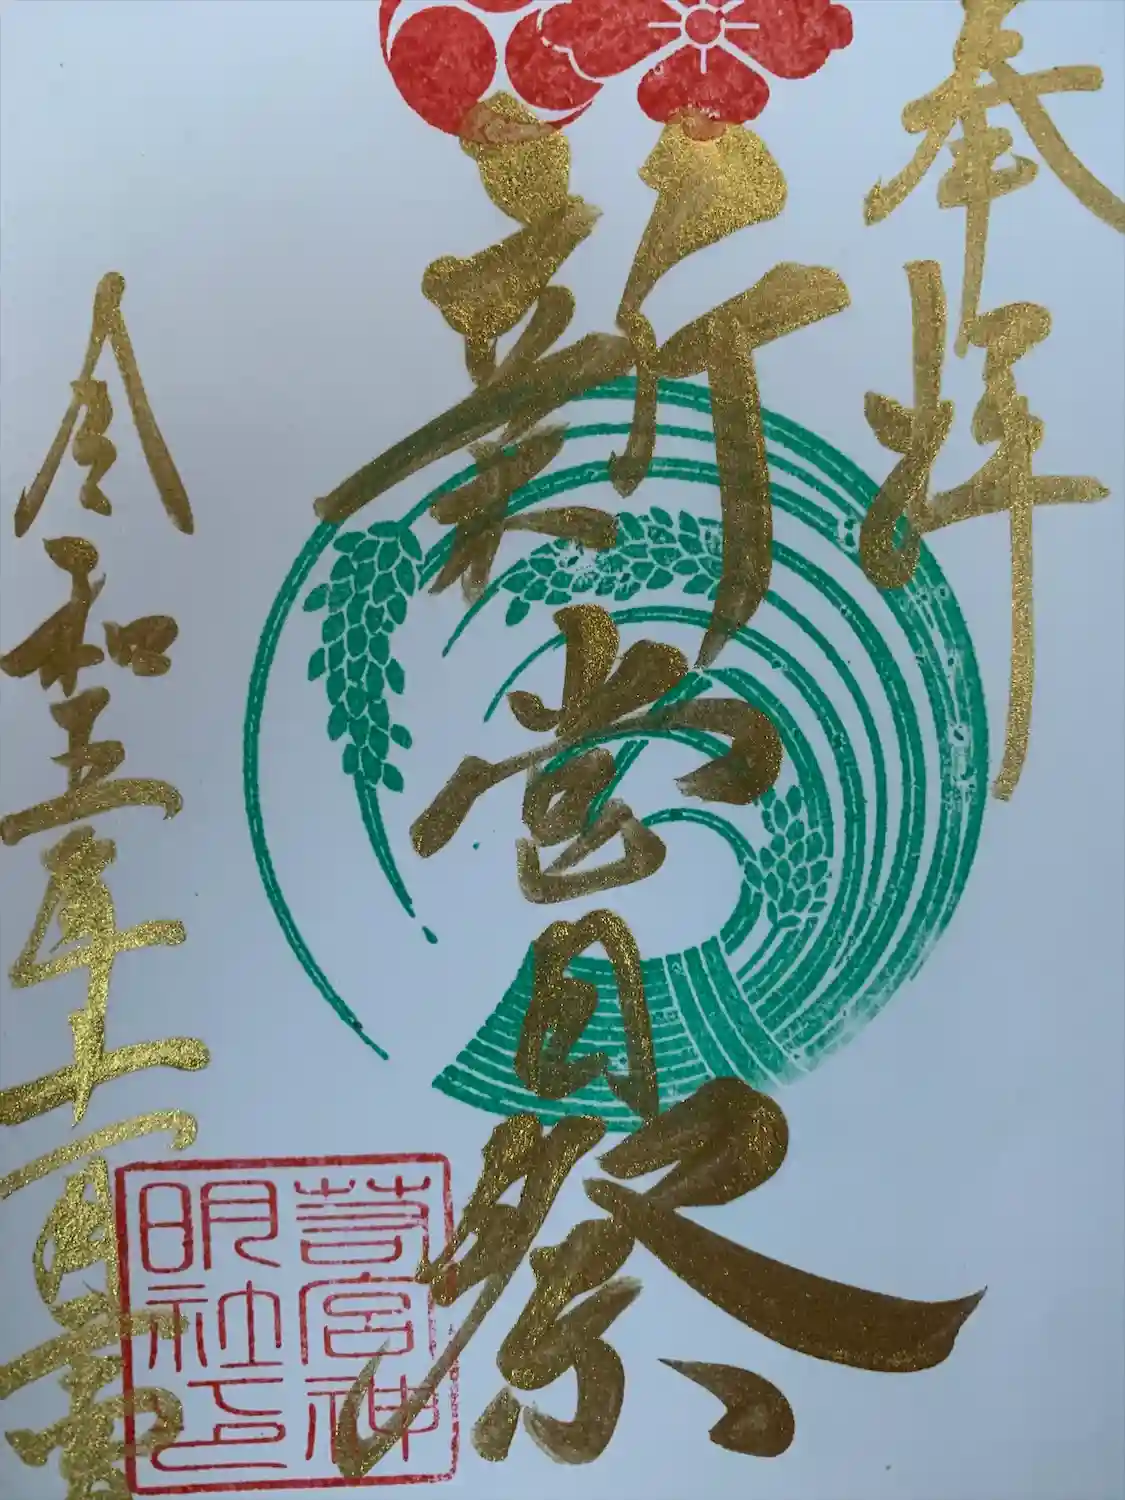 奉拝
新嘗祭
令和五年十一月
若宮神
明社印